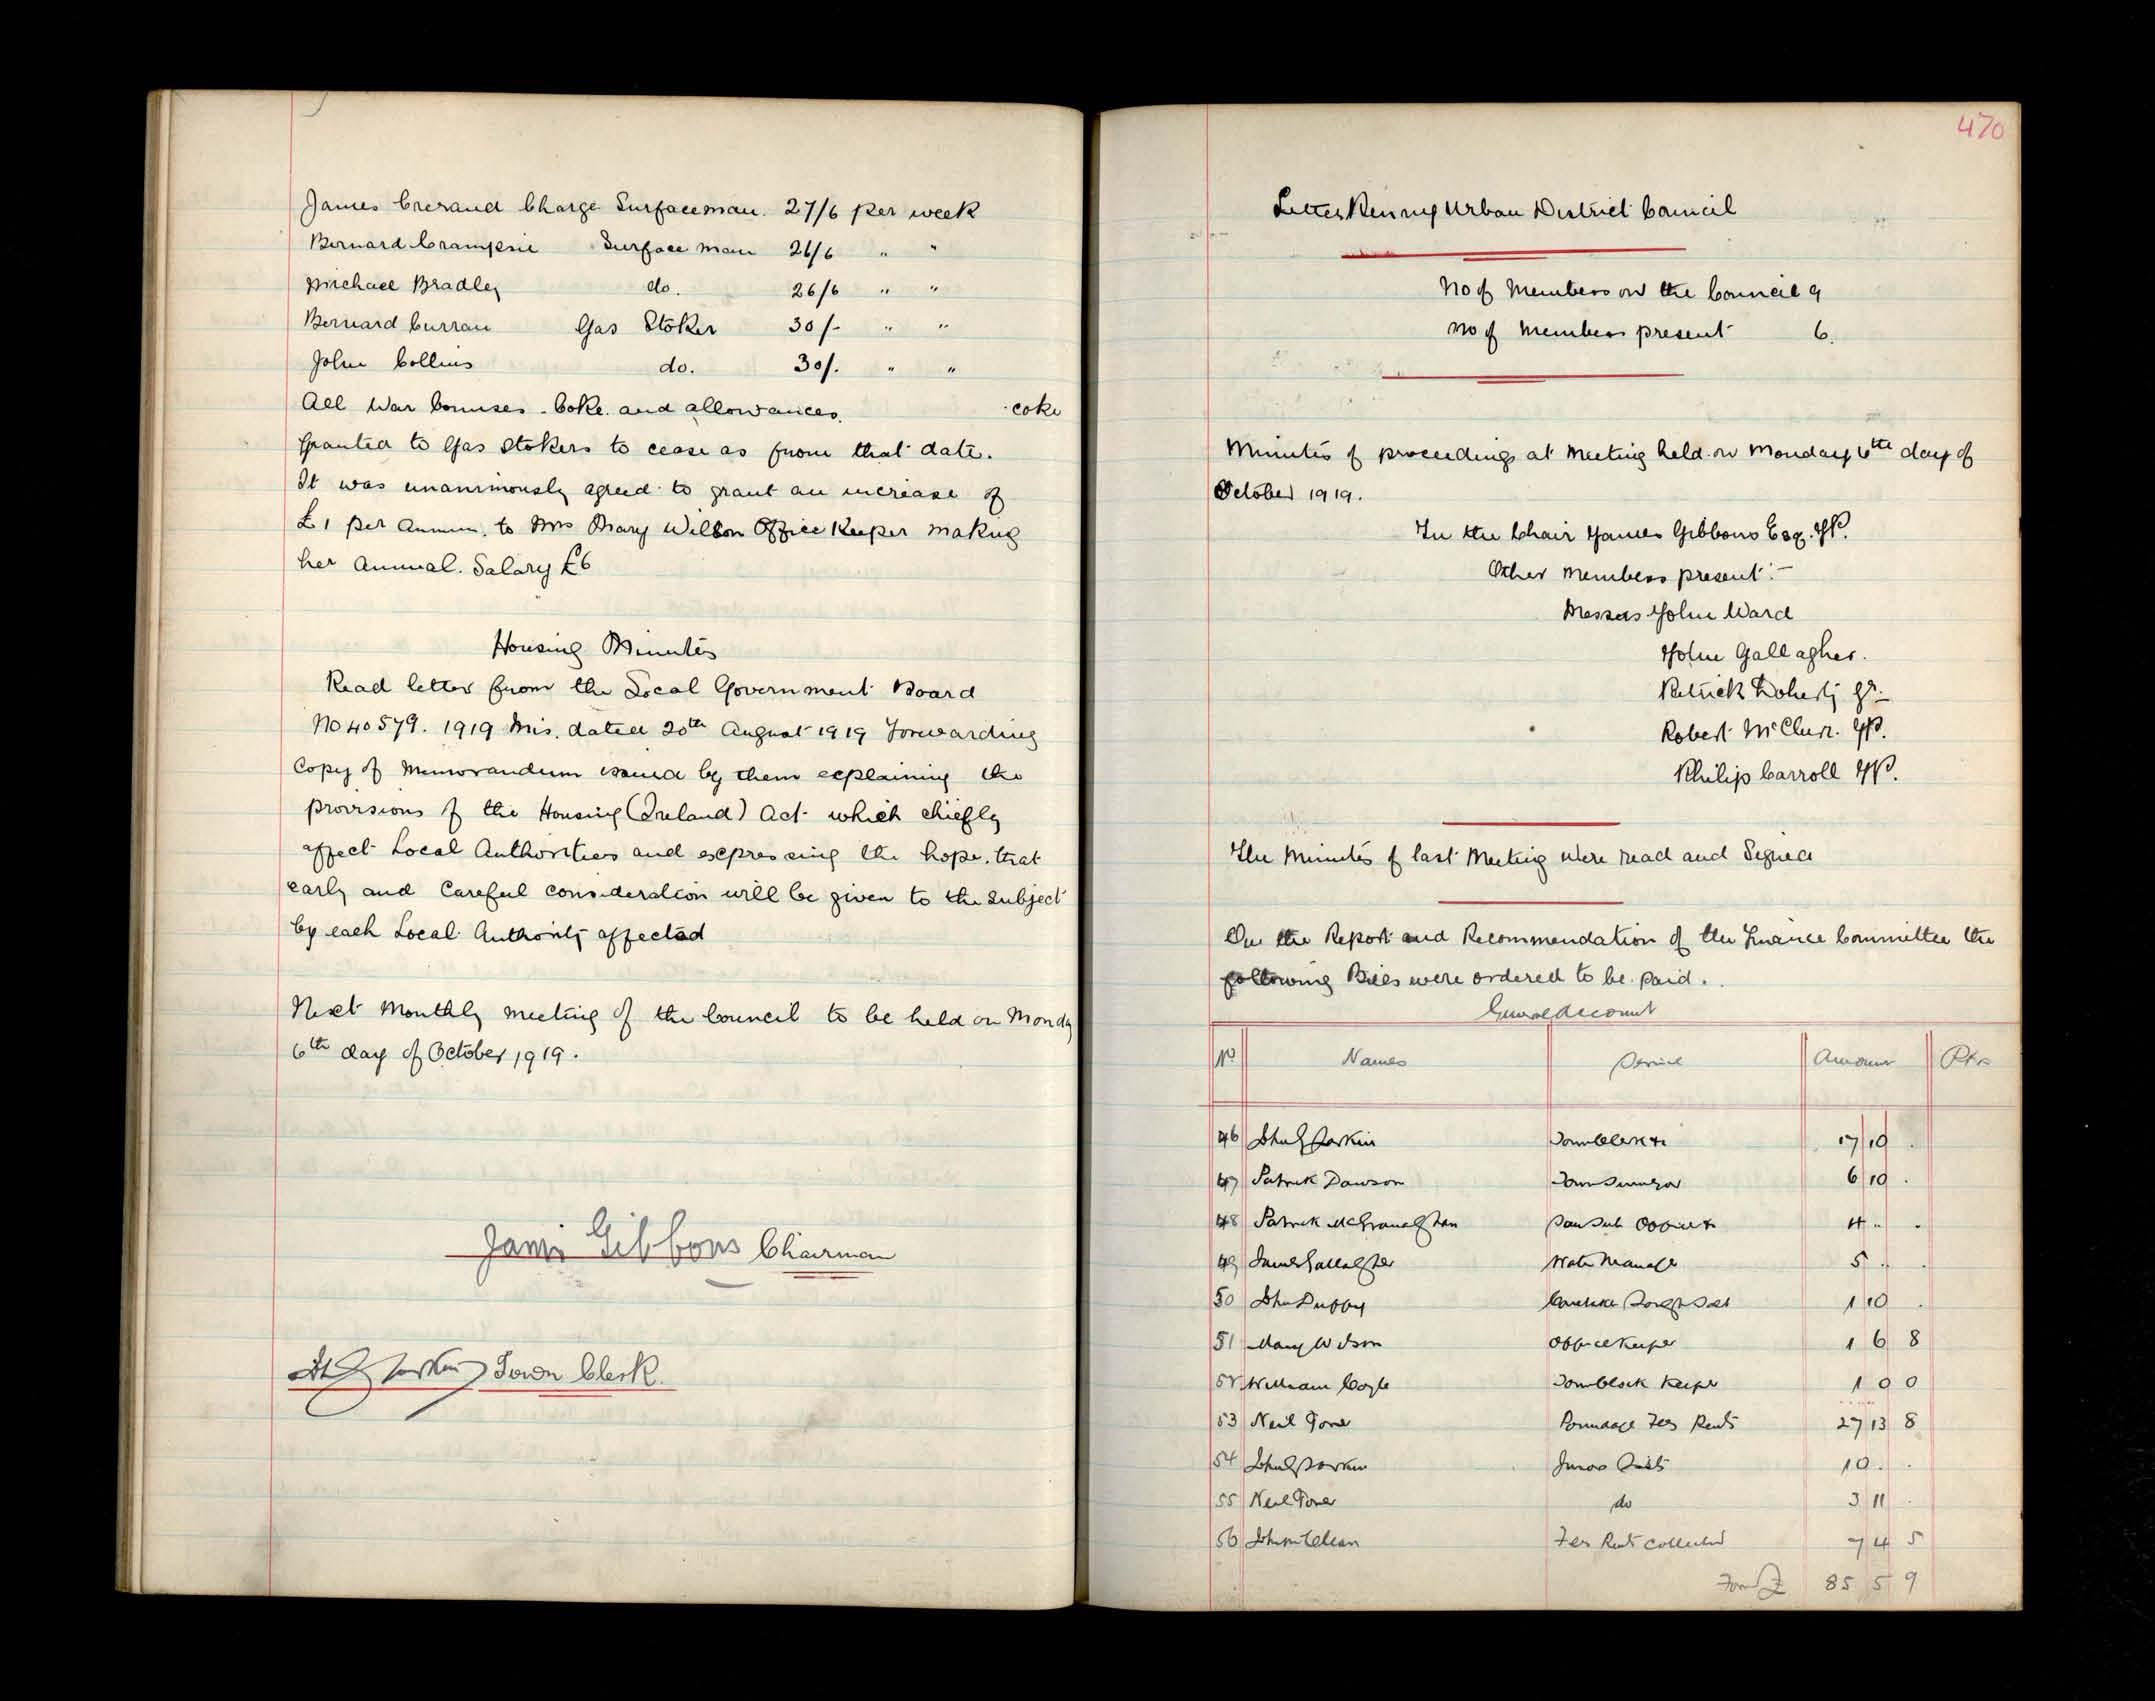 James Crerand Charge Surfaceman. 27/6 per week
Bernard Crampsie Surface man 26/6 " "
Michael Bradley do. 26/6 " "
Bernard Curran Gas Stoker 30/- " "
John Collins do. 30/. " "
All War bonuses - Coke and allowances. coke
Granted to Gas Stokers to cease as from that date.
It was unanimously agreed to grant an increase of
£1 per annum. to Mrs Mary Wilson Office Keeper making
her annual. Salary £6
Housing Minutes
Read letter from the Local Government Board
No 40579. 1919 Mis. dated 20th August 1919 Forwarding
Copy of Memorandum issued by them explaining the
provisions of the Housing (Ireland) Act which chiefly
affect Local Authorities and expressing the hope. that
early and Careful consideration will be given to the subject
by each Local Authority affected
Next Monthly meeting of the Council to be held on Mondy
6th day of October 1919.
James Gibbons Chairman
Town Clerk.
470
Letterkenny Urban District Council
No of Members on the Council 9
No of Members present 6.
Minutes of proceedings at Meeting held on Monday 6th day of
October 1919.
In the Chair James Gibbons Esq. JP.
Other members present:-
Messrs John Ward
John Gallagher.
Patrick Doherty Jr.
Robert McClure. JP.
Philip Carroll JP.
The Minutes of last Meeting were read and Signed
On the Report and Recommendation of the Finance Committee the
following Bills were ordered to be paid.
General Account
No Names Service Amount
46 John G Larkin Town Clerk &c 17 10 .
47 Patrick Dawson Town Surveyor 6 10 .
48 Patrick McGranaghan San Sub Officer & 4 . .
49 James Gallagher Water Manager 5 . .
50 John Duffy Caretaker 1 10 .
51 Mary Wilson Office Keeper 1 6 8
52 William Coyle Town Clock Keeper 1 0 0
53 Neil Toner Poundage Fees Rents 27 13 8
54 John G Larkin 10 . .
55 Neil Toner do 3 11 .
56 John McClean Fees Rents Collected 7 4 5
£ 85 5 9